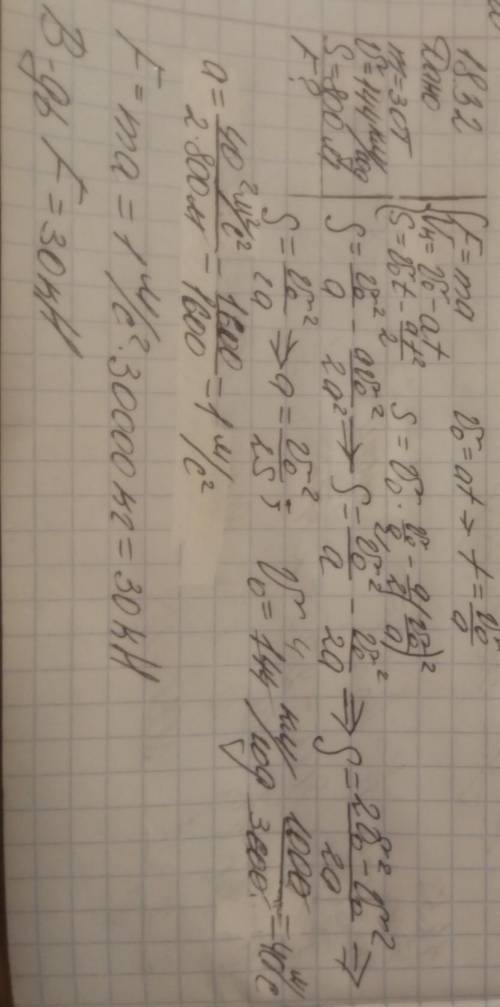 18.32
Дано
m = 30т
V₀ = 144 км/год
S = 800 м
F - ?
F = ma
Vк = V₀ - at
S = V₀t - at²/2
V₀ = at ⇒ t = V₀/a
S = V₀ · V₀/a - a/2 (V₀/a)²
S = V₀²/a - aV₀²/2a² ⇒ S = V₀²/a - V₀²/2a ⇒ S = 2V₀² - V₀²/2a ⇒
S = V₀²/2a ⇒ a = V₀²/2S ; V₀ = 144 км/год 1000/3600 = 40 м/с
a = 40² м²/с²/2·800 м - 1600/1600 = 1 м/с²
F = ma = 1 м/с² · 30000 кг = 30 кН
В-дь F = 30 кН